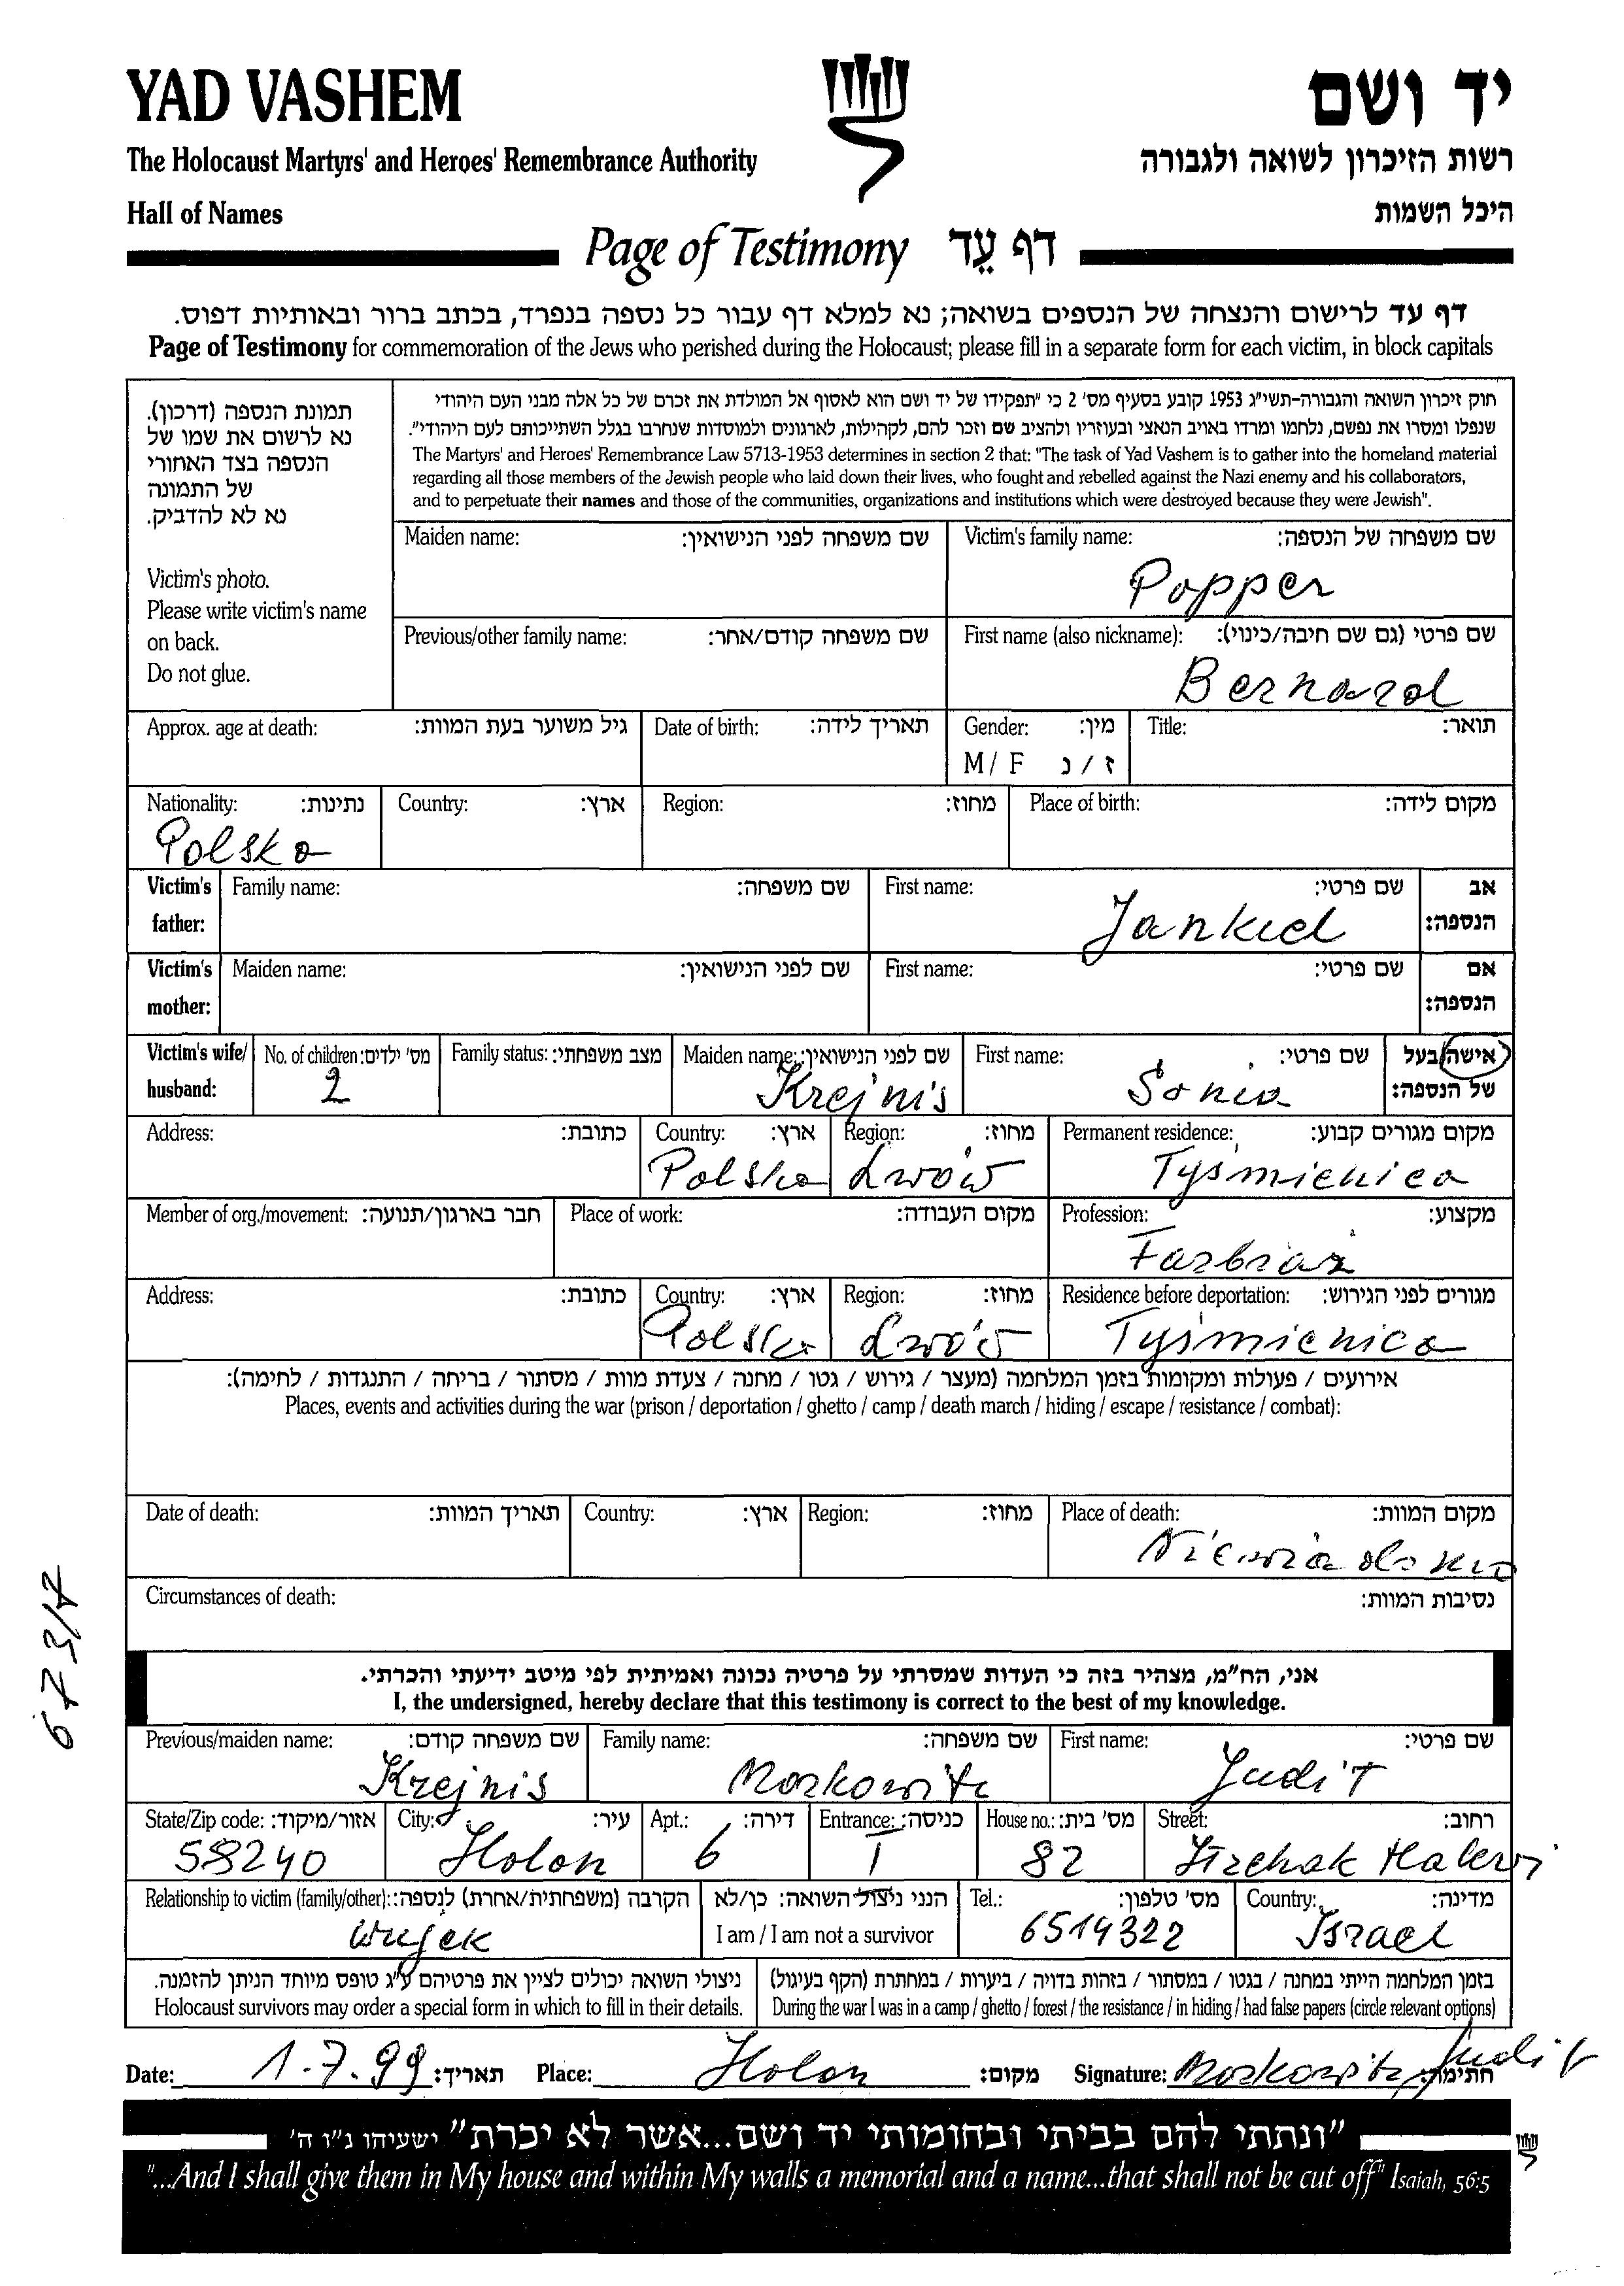 YAD VASHEM
יד ושם
The Holocaust Martyrs' and Heroes' Remembrance Authority
רשות הזיכרון לשואה ולגבורה
Hall of Names
היכל השמות
Page of Testimony דף עֵד
דף עד לרישום והנצחה של הנספים בשואה; נא למלא דף עבור כל נספה בנפרד, בכתב ברור ובאותיות דפוס.
Page of Testimony for commemoration of the Jews who perished during the Holocaust; please fill in a separate form for each victim, in block capitals
תמונת הנספה (דרכון).
נא לרשום את שמו של
הנספה בצד האחורי
של התמונה
נא לא להדביק.
Victim's photo.
Please write victim's name
on back.
Do not glue.
חוק זיכרון השואה והגבורה-תשי"ג 1953 קובע בסעיף מס' 2 כי "תפקידו של יד ושם הוא לאסוף אל המולדת את זכרם של כל אלה מבני העם היהודי
שנפלו ומסרו את נפשם, נלחמו ומרדו באויב הנאצי ובעוזריו ולהציב שם וזכר להם, לקהילות, לארגונים ולמוסדות שנחרבו בגלל השתייכותם לעם היהודי".
The Martyrs' and Heroes' Remembrance Law 5713-1953 determines in section 2 that: "The task of Yad Vashem is to gather into the homeland material
regarding all those members of the Jewish people who laid down their lives, who fought and rebelled against the Nazi enemy and his collaborators,
and to perpetuate their names and those of the communities, organizations and institutions which were destroyed because they were Jewish".
Maiden name: שם משפחה לפני הנישואין: Victim's family name: שם משפחה של הנספה:
Popper
Previous/other family name: שם משפחה קודם/אחר: First name (also nickname): שם פרטי (גם שם חיבה/כינוי):
Bernard
Approx. age at death: גיל משוער בעת המוות: Date of birth: תאריך לידה: Gender: מין: Title: תואר:
M / F ז / נ
Nationality: נתינות: Country: ארץ: Region: מחוז: Place of birth: מקום לידה:
Polska
Victim's father: Family name: שם משפחה: First name: שם פרטי: אב הנספה:
Jankiel
Victim's mother: Maiden name: שם לפני הנישואין: First name: שם פרטי: אם הנספה:
Victim's wife/ husband: No. of children: מס' ילדים: Family status: מצב משפחתי: Maiden name: שם לפני הנישואין: First name: שם פרטי: אישה/בעל של הנספה:
2 Krejnis Sonia
Address: כתובת: Country: ארץ: Region: מחוז: Permanent residence: מקום מגורים קבוע:
Polska Lwów Tyśmienica
Member of org./movement: חבר בארגון/תנועה: Place of work: מקום העבודה: Profession: מקצוע:
Farbiaż
Address: כתובת: Country: ארץ: Region: מחוז: Residence before deportation: מגורים לפני הגירוש:
Polska Lwów Tyśmienica
אירועים / פעולות ומקומות בזמן המלחמה (מעצר / גירוש / גטו / מחנה / צעדת מוות / מסתור / בריחה / התנגדות / לחימה):
Places, events and activities during the war (prison / deportation / ghetto / camp / death march / hiding / escape / resistance / combat):
Date of death: תאריך המוות: Country: ארץ: Region: מחוז: Place of death: מקום המוות:
Circumstances of death: נסיבות המוות:
673/7
אני, הח"מ, מצהיר בזה כי העדות שמסרתי על פרטיה נכונה ואמיתית לפי מיטב ידיעתי והכרתי.
I, the undersigned, hereby declare that this testimony is correct to the best of my knowledge.
Previous/maiden name: שם משפחה קודם: Family name: שם משפחה: First name: שם פרטי:
Krejnis Moskowitz Judit
State/Zip code: אזור/מיקוד: City: עיר: Apt.: דירה: Entrance: כניסה: House no.: מס' בית: Street: רחוב:
58240 Holon 6 I 82 Itzchak Halewi
Relationship to victim (family/other): הקרבה (משפחתית/אחרת) לנספה: הנני ניצול השואה: כן/לא Tel.: מס' טלפון: Country: מדינה:
Wujek I am / I am not a survivor 6514322 Israel
ניצולי השואה יכולים לציין את פרטיהם ע"ג טופס מיוחד הניתן להזמנה. בזמן המלחמה הייתי במחנה / בגטו / במסתור / בזהות בדויה / ביערות / במחתרת (הקף בעיגול)
Holocaust survivors may order a special form in which to fill in their details. During the war I was in a camp / ghetto / forest / the resistance / in hiding / had false papers (circle relevant options)
Date: 1.7.99 תאריך: Place: Holon מקום: Signature: Moskowitz Judit חתימה:
"ונתתי להם בביתי ובחומותי יד ושם...אשר לא יכרת" ישעיהו נ"ו ה'
"...And I shall give them in My house and within My walls a memorial and a name...that shall not be cut off" Isaiah, 56:5